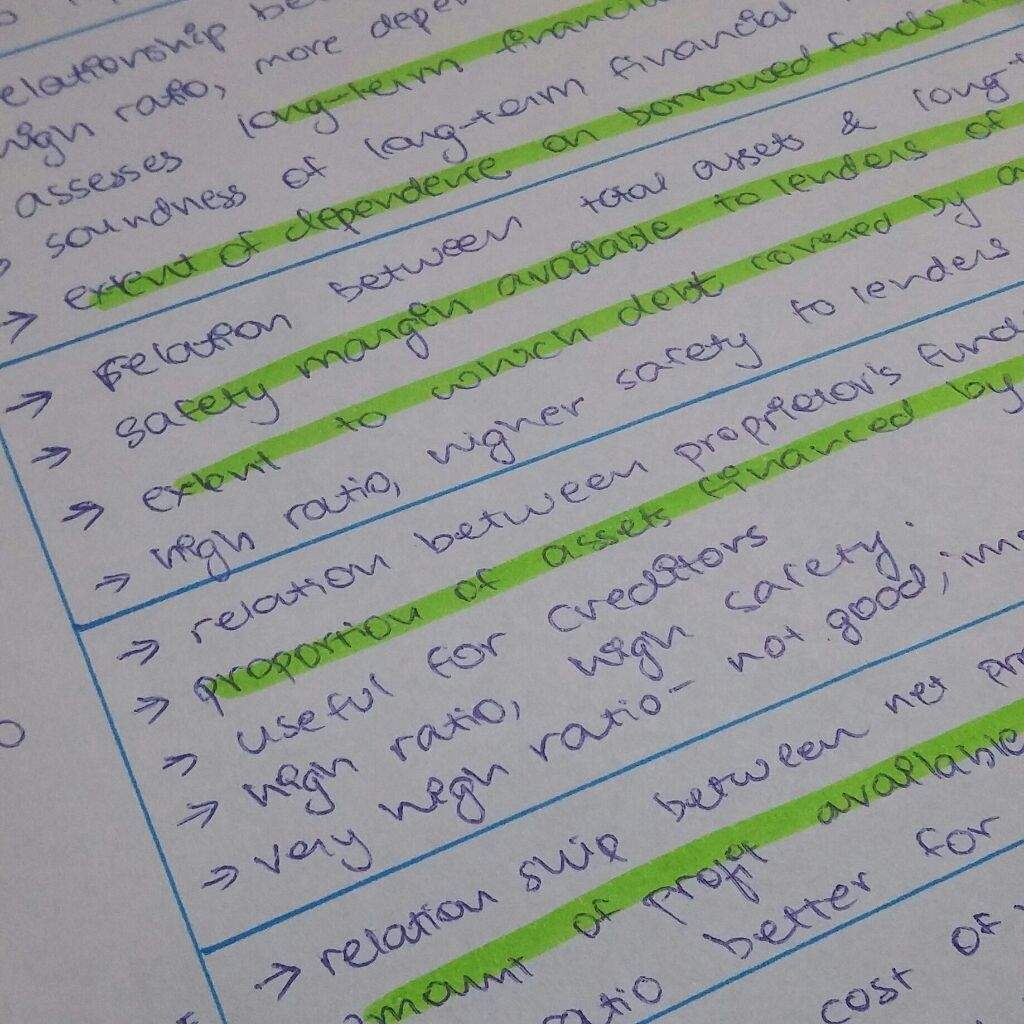 relationship be
high ratio, more depe
assesses long-term financia
soundness of long-term financial
→ extent of dependence on borrowed funds
→ relation between total assets & long-t
→ safety margin available to lenders of
→ extent to which debt covered by a
→ high ratio, higher safety to lenders
→ relation between proprietor's fund
→ proportion of assets financed by
→ useful for creditors
→ high ratio, high safety.
→ very high ratio- not good; im
→ relation ship between net pr
amount of profit available
ratio better for
cost of